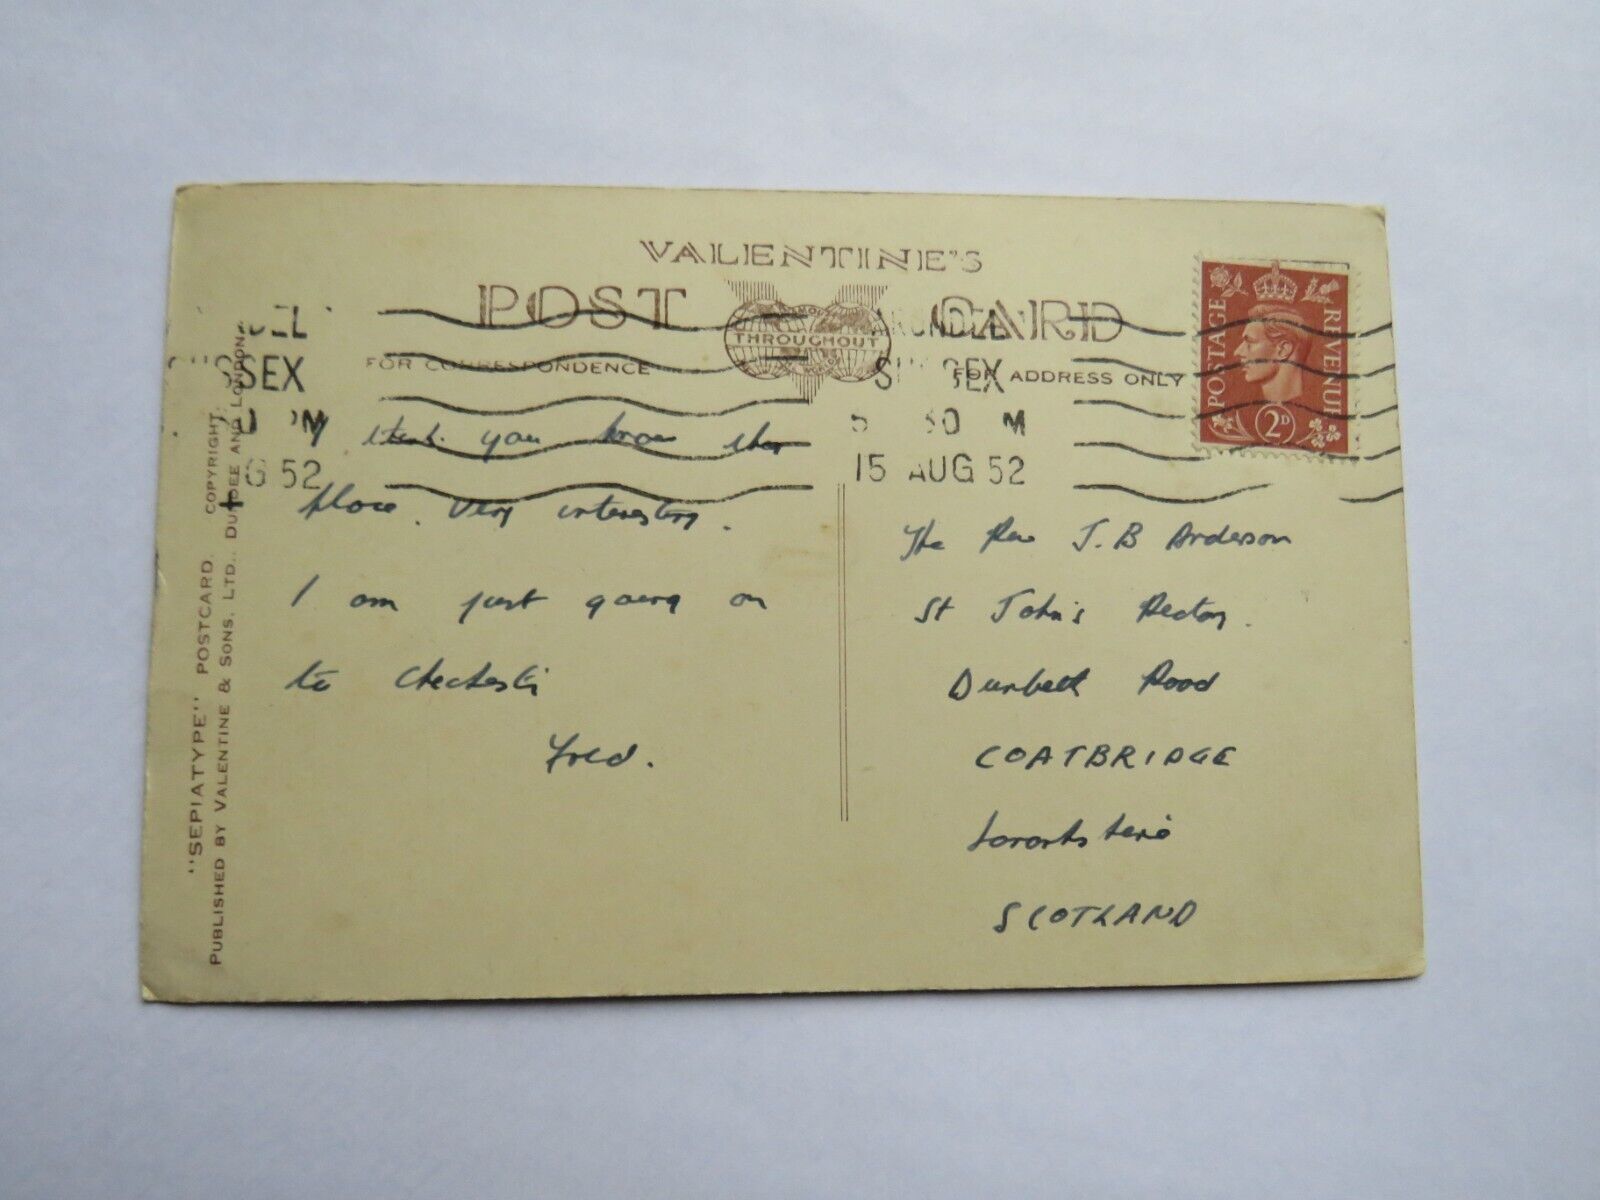 VALENTINE'S
POST CARD
THROUGHOUT
FOR CORRESPONDENCE
FOR ADDRESS ONLY
POSTAGE REVENUE
2D
ARUNDEL
SUSSEX
30 M
15 AUG 52
SSEX
PM
G 52
I think you know this
place. Very interesting.
I am just going on
to Chichester
Fred.
The Rev J.B Anderson
St John's Rectory.
Dunbeth Road
COATBRIDGE
Lanarkshire
SCOTLAND
"SEPIATYPE" POSTCARD. COPYRIGHT.
PUBLISHED BY VALENTINE & SONS. LTD., DUNDEE AND LONDON.